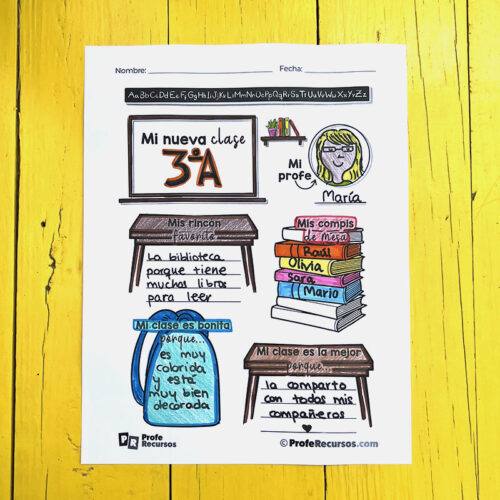 Nombre: ____________ Fecha: ____________
AaBbCcDdEeFfGgHhIiJjKkLlMmNnOoPpQqRrSsTtUuVvWwXxYyZz
Mi nueva clase
3ºA
Mi
profe
María
Mis rincón
favorito
La biblioteca
porque tiene
muchos libros
para leer
Mis compis
de mesa
Raúl
Olivia
Sara
Mario
Mi clase es bonita
porque...
es muy
colorida
y está
muy bien
decorada
Mi clase es la mejor
porque...
la comparto
con todos mis
compañeros
PR Profe
Recursos
© ProfeRecursos.com